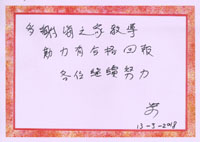 多謝海之家教導
動力有合格回報
各位繼續努力
13-5-2018